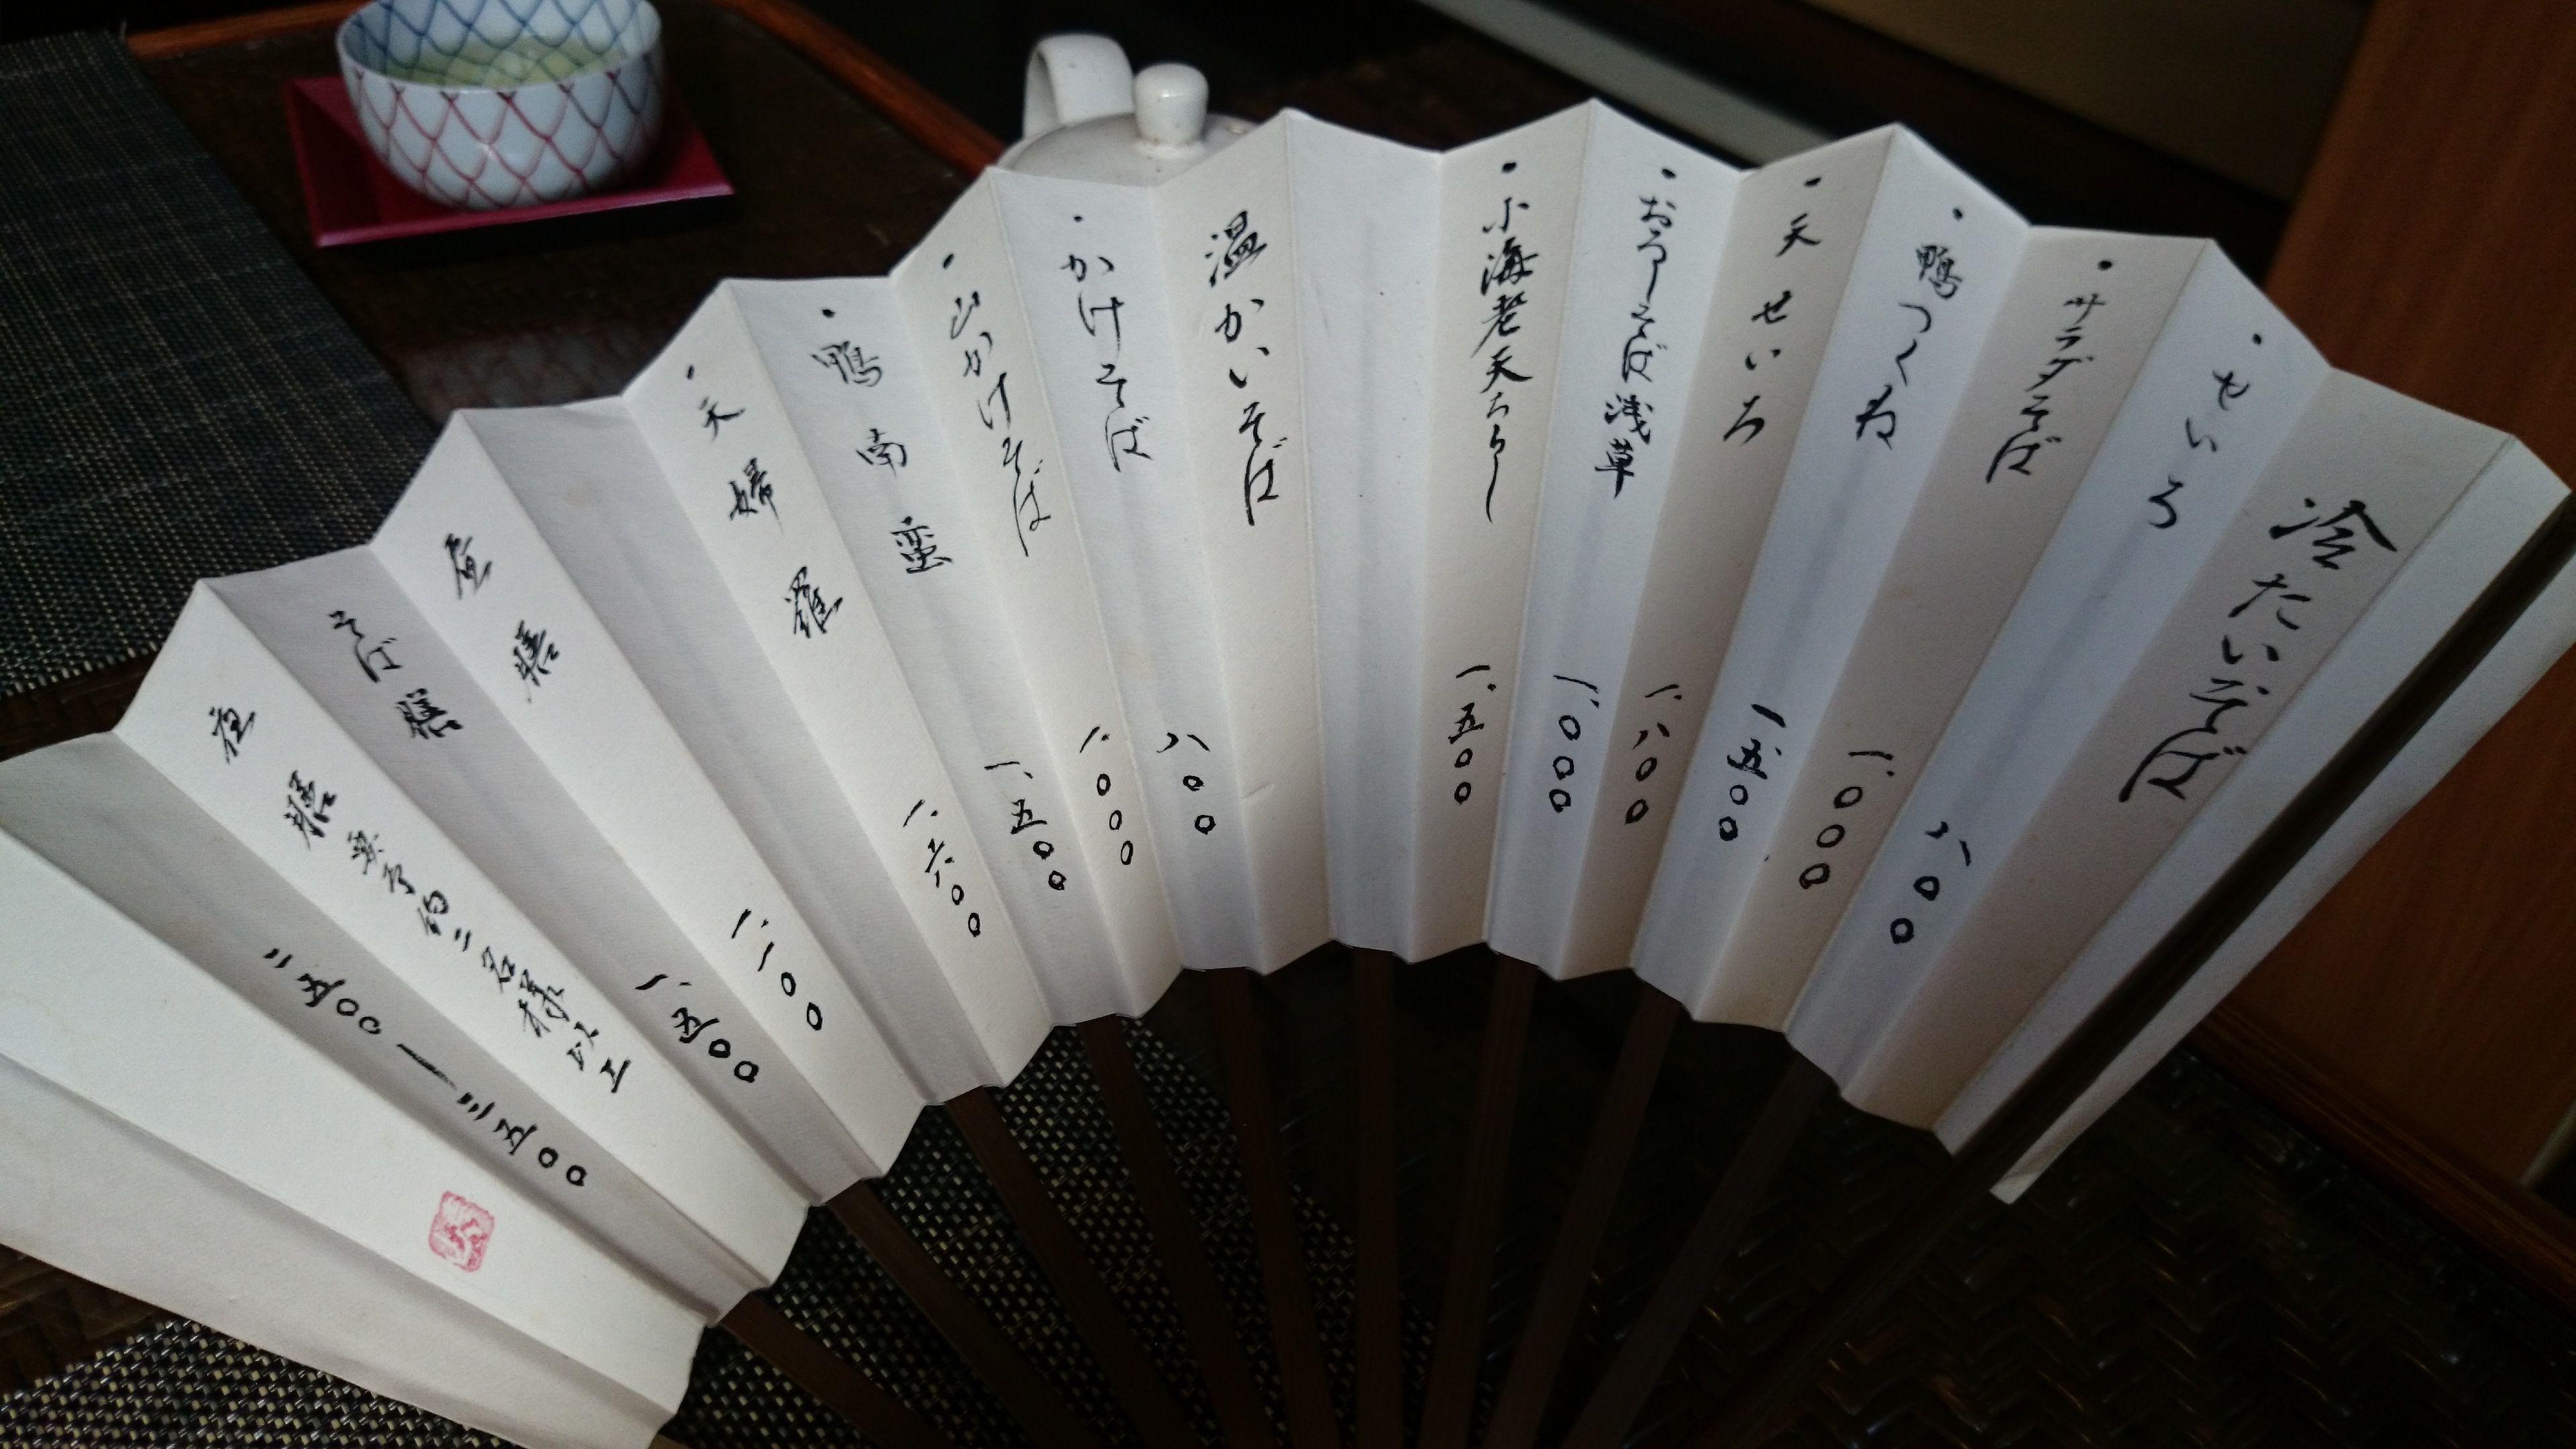 冷たいそば
・せいろ 八〇〇
・サラダそば 一、〇〇〇
・鴨つくね 一、五〇〇
・天せいろ 一、八〇〇
・おろしそば浅草 一、〇〇〇
・小海老天ちらし 一、五〇〇
温かいそば
・かけそば 八〇〇
・山かけそば 一、〇〇〇
・鴨南蛮 一、五〇〇
・天婦羅 一、六〇〇
昼膳 一、一〇〇
そば膳 一、五〇〇
夜膳 要予約二名様以上
二五〇〇ー三五〇〇